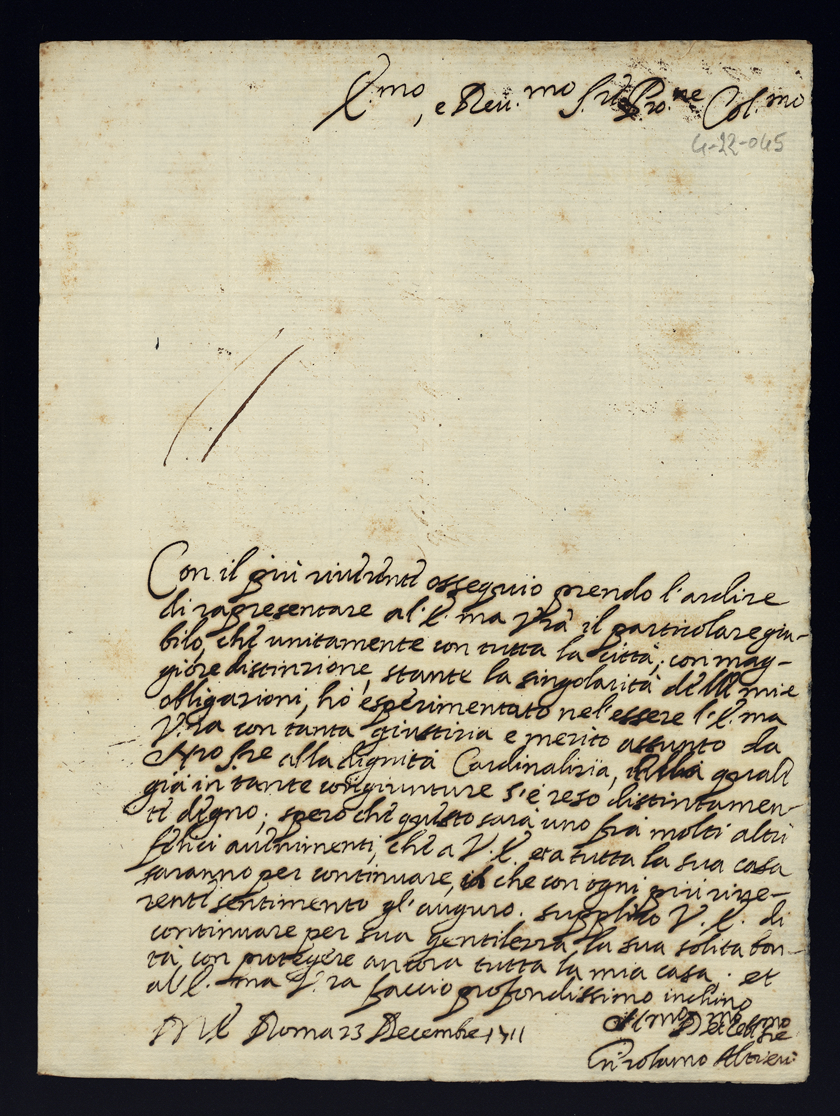 E.mo, e Rev.mo S.re Pro.ne Col.mo
G-22-045
Con il più riverente ossequio prendo l'ardire
di rapresentare al'E.ma V.ra il particolare giu-
bilo, che unitamente con tutta la città, con mag-
giore distinzione, stante la singolarità delle mie
obligazioni, hò esperimentato nel'essere l'E.ma
V.ra con tanta giustizia e merito assunto da
N.ro S.re alla dignità Cardinalizia, della quale
già in tante congiunture s'è reso distintamen-
te degno; spero che questo sarà uno fra molti altri
felici avenimenti, che a V.E. et a tutta la sua casa
saranno per continuare, il che con ogni più rive-
rente sentimento gl'auguro. supplico V.E. di
continuare per sua gentilezza la sua solita bon-
tà con protegere ancora tutta la mia casa. et
al'E.ma V.ra faccio profondissimo inchino
D.V.E. Roma 23 Decembre 1711
Girolamo Altieri